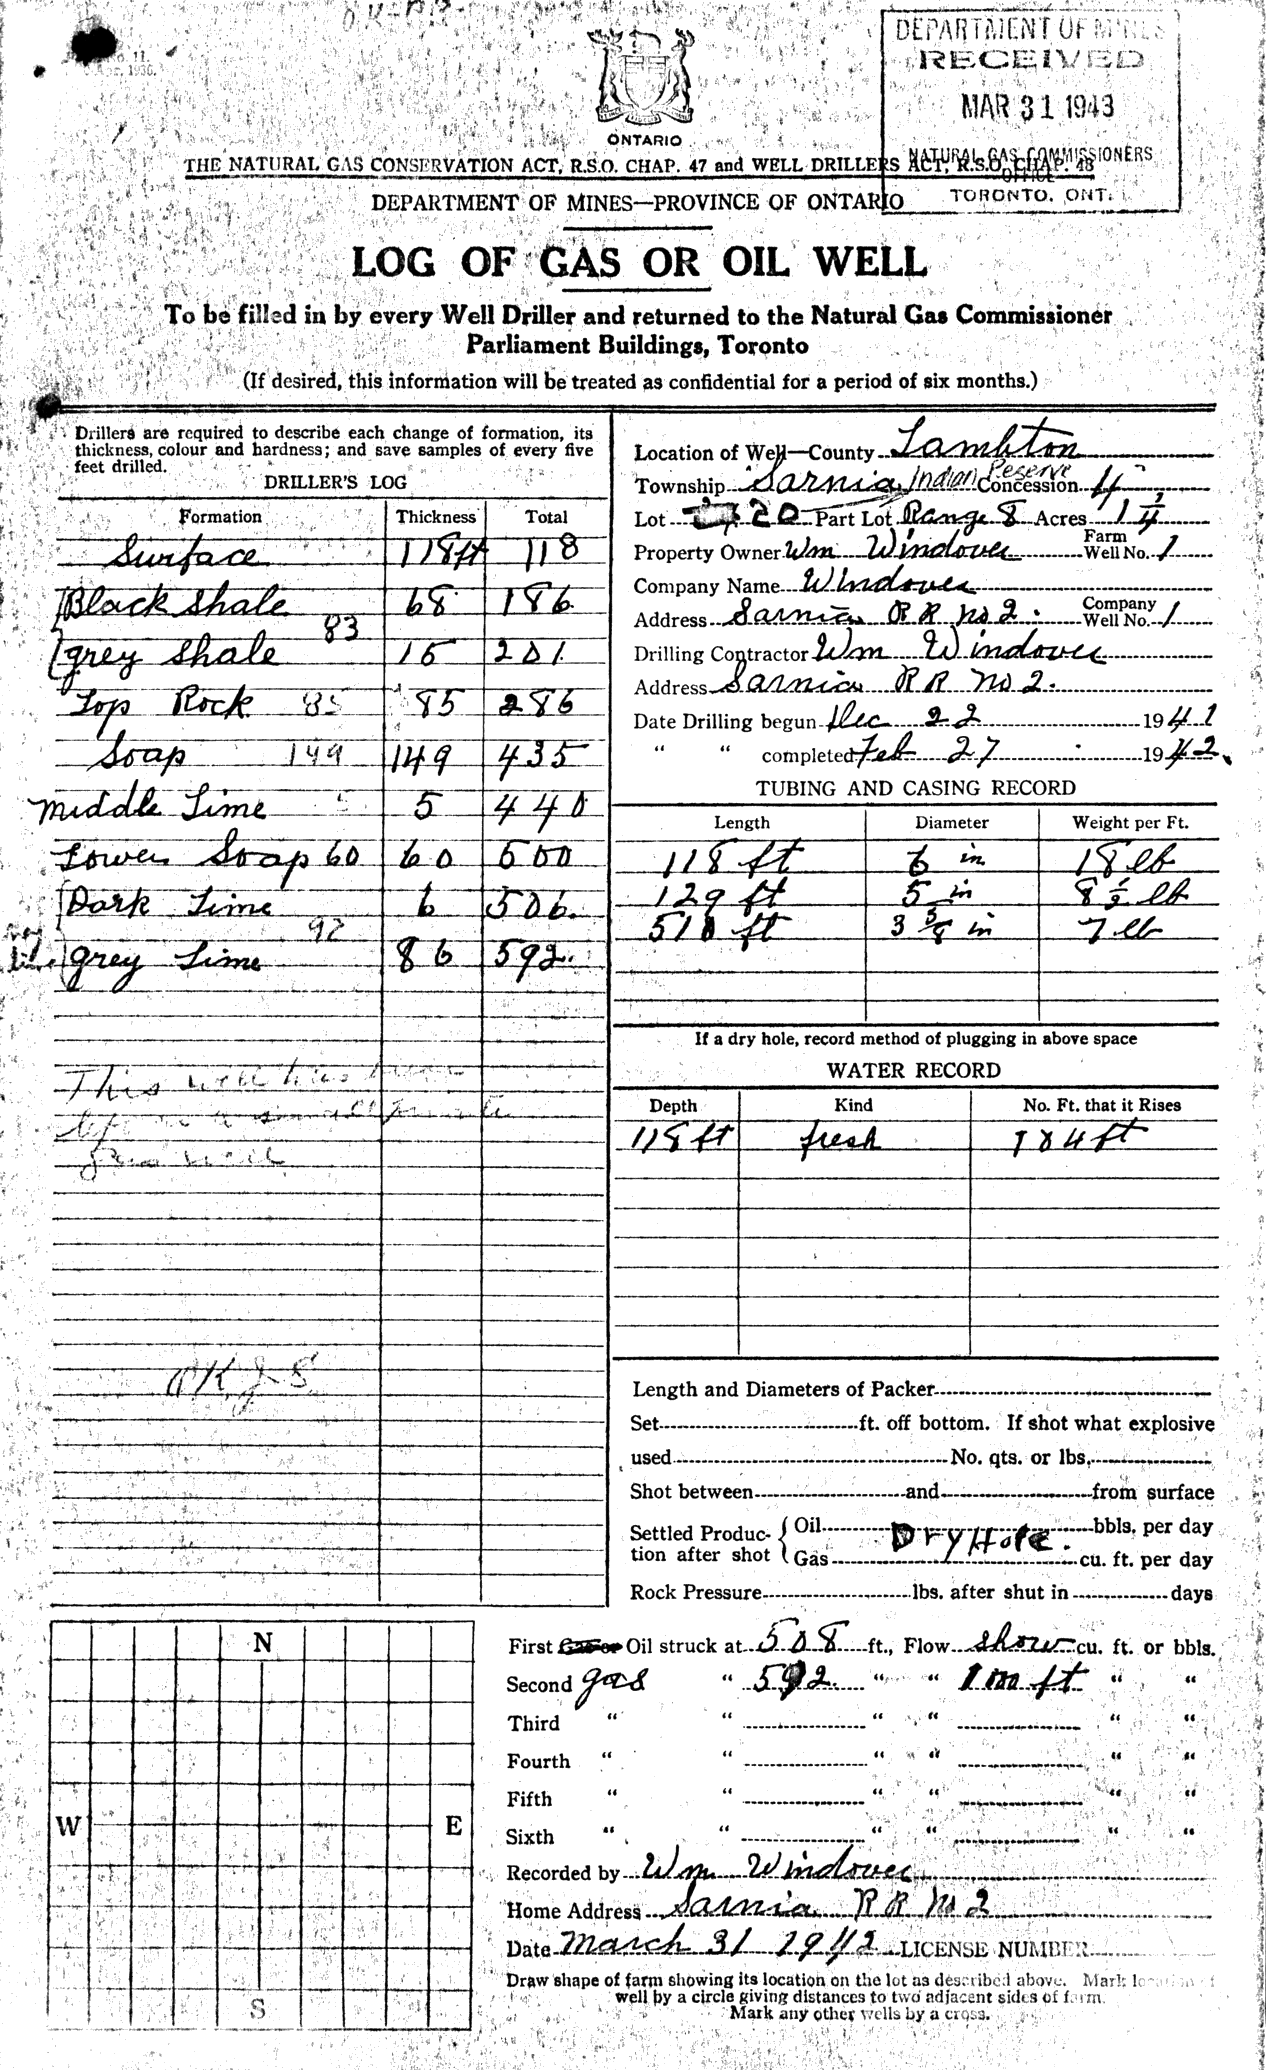 DEPARTMENT OF MINES
RECEIVED
MAR 31 1943
NATURAL GAS COMMISSIONERS
OFFICE
TORONTO, ONT.
ONTARIO
THE NATURAL GAS CONSERVATION ACT, R.S.O. CHAP. 47 and WELL DRILLERS ACT, R.S.O. CHAP. 48
DEPARTMENT OF MINES—PROVINCE OF ONTARIO
LOG OF GAS OR OIL WELL
To be filled in by every Well Driller and returned to the Natural Gas Commissioner
Parliament Buildings, Toronto
(If desired, this information will be treated as confidential for a period of six months.)
Drillers are required to describe each change of formation, its
thickness, colour and hardness; and save samples of every five
feet drilled.
DRILLER'S LOG
Formation Thickness Total
Surface 118 ft 118
Black Shale 68 186
83
grey Shale 15 201
Top Rock 85 85 286
Soap 149 149 435
Middle Lime 5 5 440
Lower Soap 60 60 500
Dark Lime 6 506.
92
grey Lime 86 592.
This well has been
left as a small private
gas well
OK JS
Location of Well—County Lambton
Township Sarnia Indian Reserve Concession 4
Lot 20 Part Lot Range 8 Acres 1 1/4
Property Owner Wm Windover Farm Well No. 1
Company Name Windover
Address Sarnia R R No 2. Company Well No. 1
Drilling Contractor Wm Windover
Address Sarnia R R No 2.
Date Drilling begun Dec 22 1941
" " completed Feb 27 1942.
TUBING AND CASING RECORD
Length Diameter Weight per Ft.
118 ft 6 in 18 lb
129 ft 5 in 8 1/2 lb
510 ft 3 5/8 in 7 lb
If a dry hole, record method of plugging in above space
WATER RECORD
Depth Kind No. Ft. that it Rises
118 ft fresh 104 ft
Length and Diameters of Packer
Set ft. off bottom. If shot what explosive
used No. qts. or lbs.
Shot between and from surface
Settled Produc- Oil bbls. per day
Dry Hole.
tion after shot Gas cu. ft. per day
Rock Pressure lbs. after shut in days
N
W E
S
First Gas or Oil struck at 508 ft., Flow show cu. ft. or bbls.
Second gas " 592. " " 100 ft " "
Third " " " " " "
Fourth " " " " " "
Fifth " " " " " "
Sixth " " " " " "
Recorded by Wm Windover
Home Address Sarnia R R No 2
Date March 31 1942 LICENSE NUMBER
Draw shape of farm showing its location on the lot as described above. Mark location of
well by a circle giving distances to two adjacent sides of farm.
Mark any other wells by a cross.